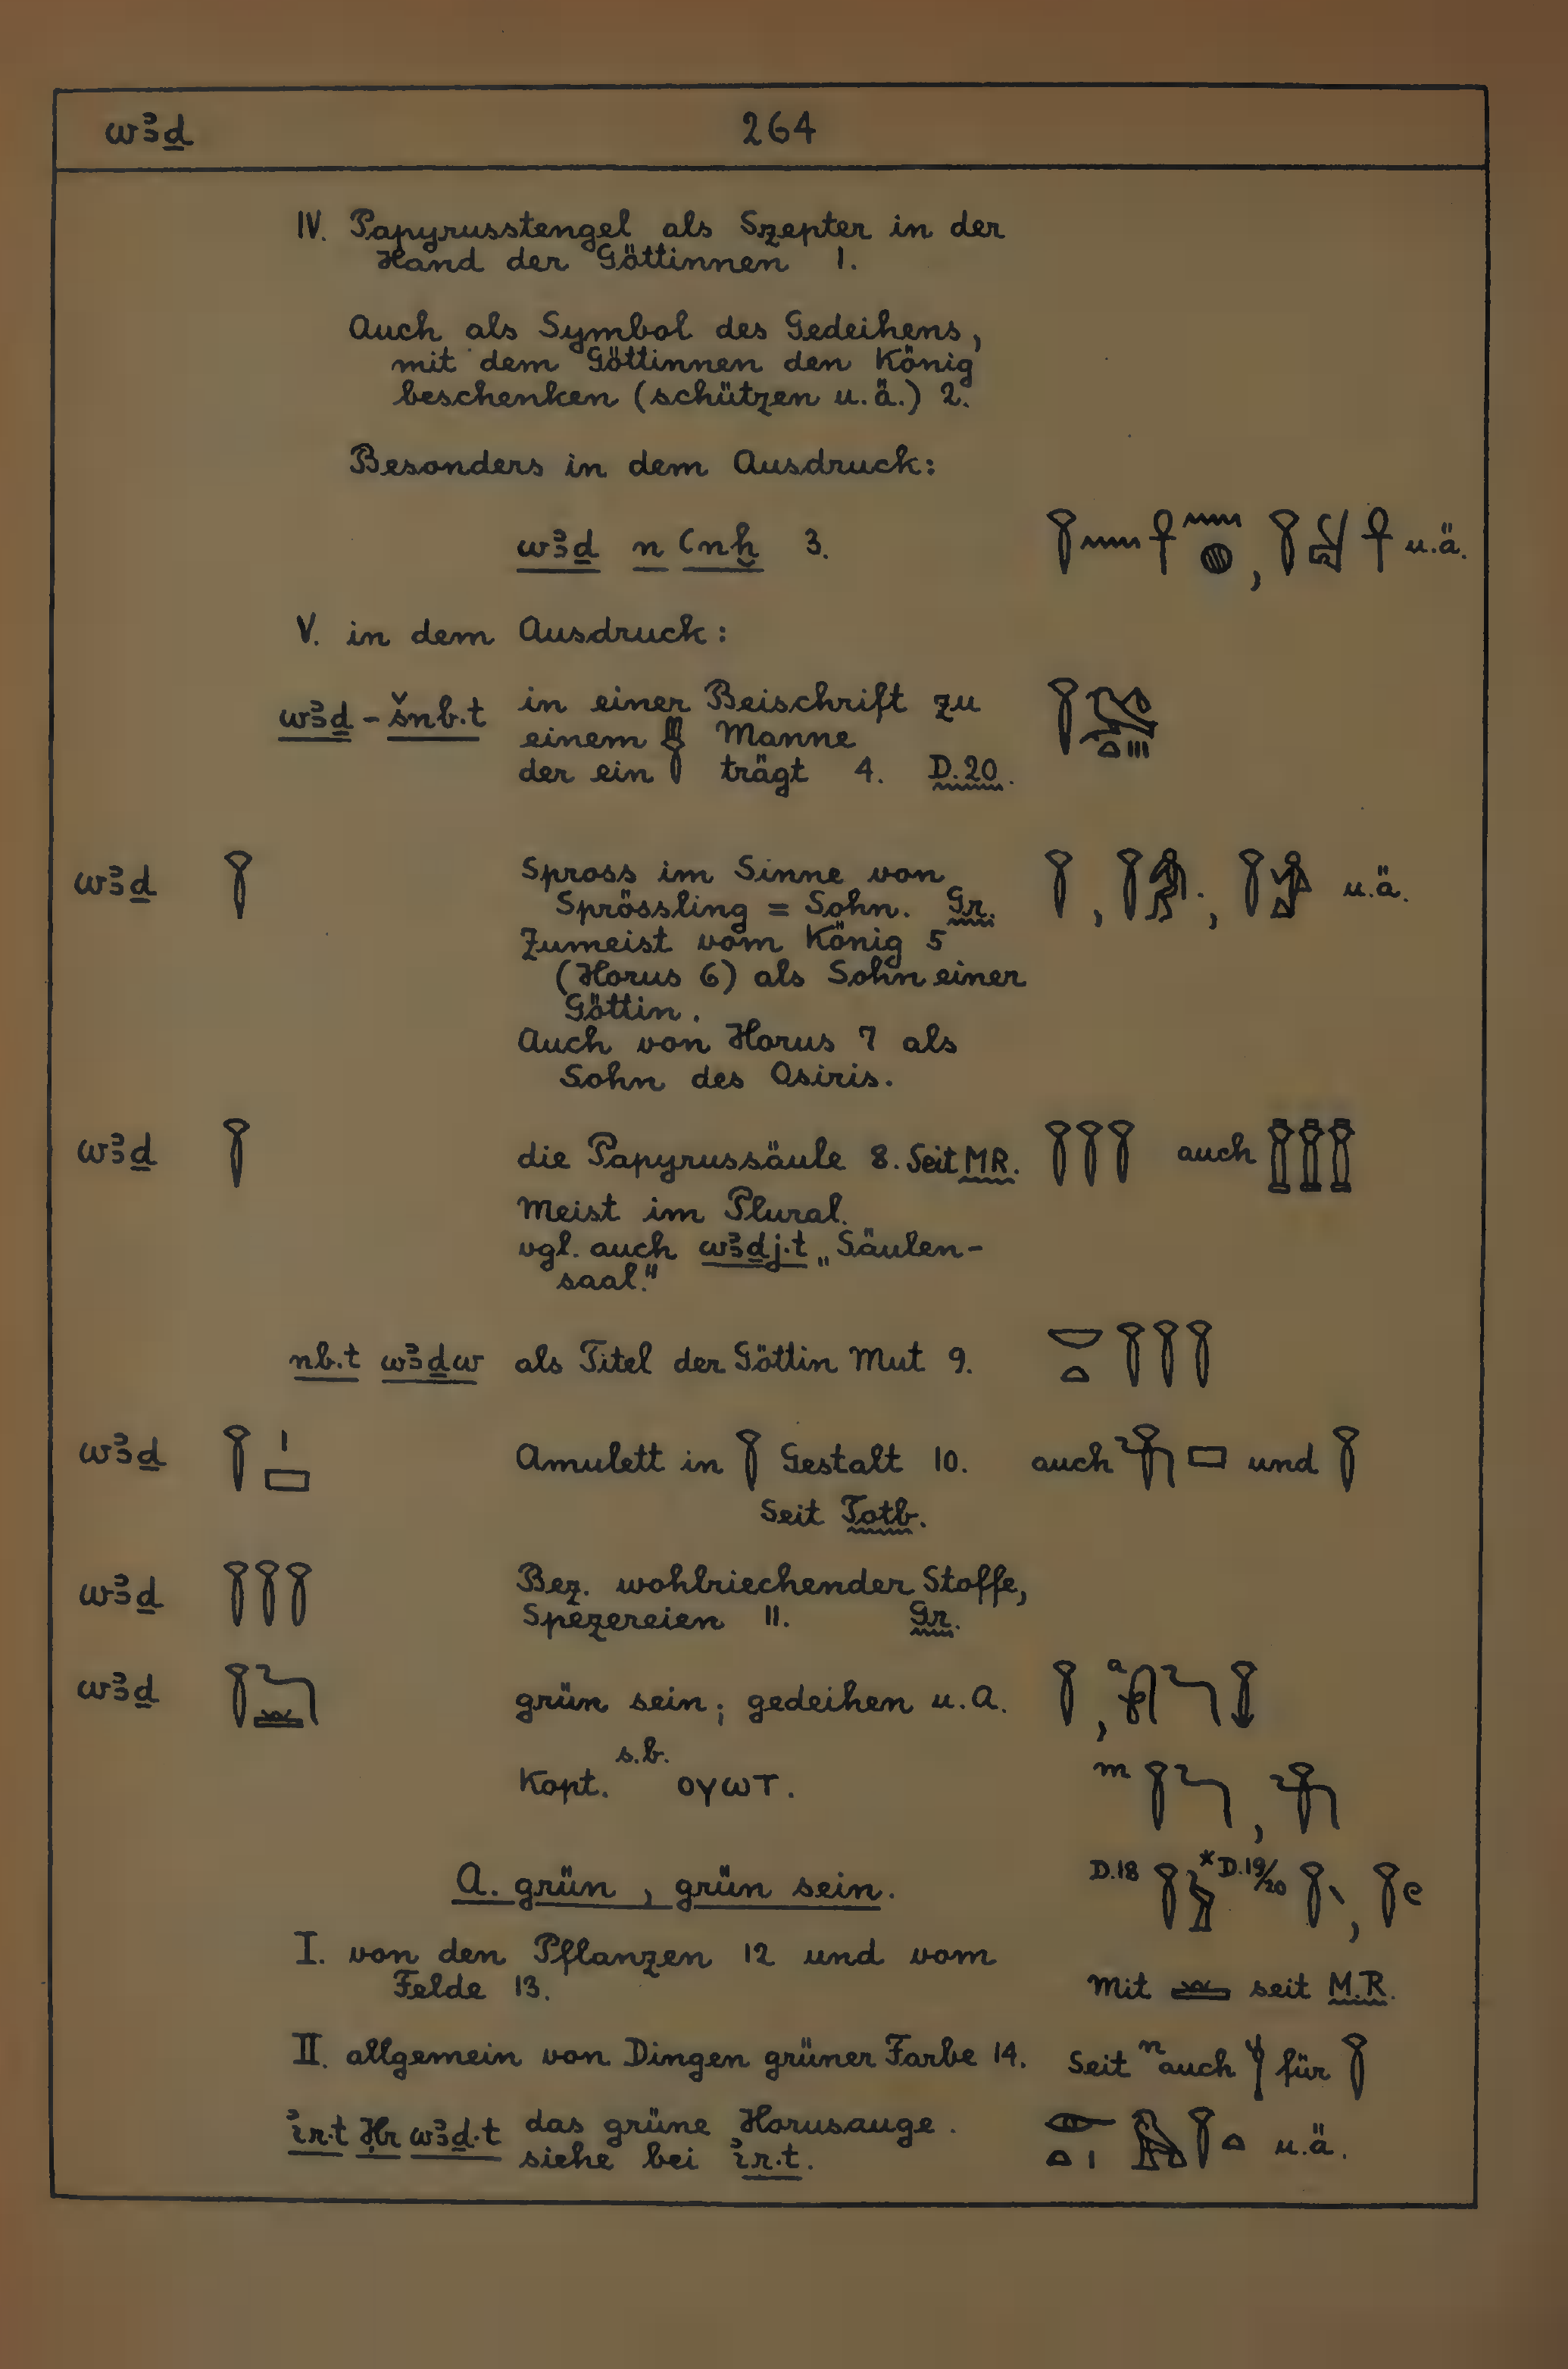 wꜣḏ 264
IV. Papyrusstengel als Szepter in der
Hand der Göttinnen 1.
Auch als Symbol des Gedeihens,
mit dem Göttinnen den König
beschenken (schützen u.ä.) 2.
Besonders in dem Ausdruck:
wꜣḏ n ꜥnḫ 3. 𓇅𓈖𓋹𓈖𓐍, 𓇅 𓋹 u.ä.
V. in dem Ausdruck:
wꜣḏ - šnb.t in einer Beischrift zu
einem Manne
der ein trägt 4. D.20.
wꜣḏ 𓇅 Spross im Sinne von 𓇅, 𓇅, 𓇅 u.ä.
Sprössling = Sohn. Gr.
Zumeist vom König 5
(Horus 6) als Sohn einer
Göttin.
Auch von Horus 7 als
Sohn des Osiris.
wꜣḏ 𓇅 die Papyrussäule 8. Seit MR. 𓇅𓇅𓇅 auch
Meist im Plural.
vgl. auch wꜣḏj.t „Säulen-
saal."
nb.t wꜣḏw als Titel der Göttin Mut 9. 𓎟𓏏𓇅𓇅𓇅
wꜣḏ 𓇅𓏤𓈙 Amulett in 𓇅 Gestalt 10. auch 𓇅𓈙 und 𓇅
Seit Totb.
wꜣḏ 𓇅𓇅𓇅 Bez. wohlriechender Stoffe,
Spezereien 11. Gr.
wꜣḏ 𓇅𓆓𓏛 grün sein; gedeihen u.A. 𓇅, a
Kopt. s.b. ⲟⲩⲱⲧ. m 𓇅𓆓, 𓇆
A. grün, grün sein. D.18 𓇅 *D.19/20 𓇅, 𓇅
I. von den Pflanzen 12 und vom
Felde 13. Mit seit M.R.
II. allgemein von Dingen grüner Farbe 14. Seit n auch für 𓇅
ꞽr.t Ḥr wꜣḏ.t das grüne Horusauge. 𓁹𓏏𓏤𓅃𓇅𓏏 u.ä.
siehe bei ꞽr.t.